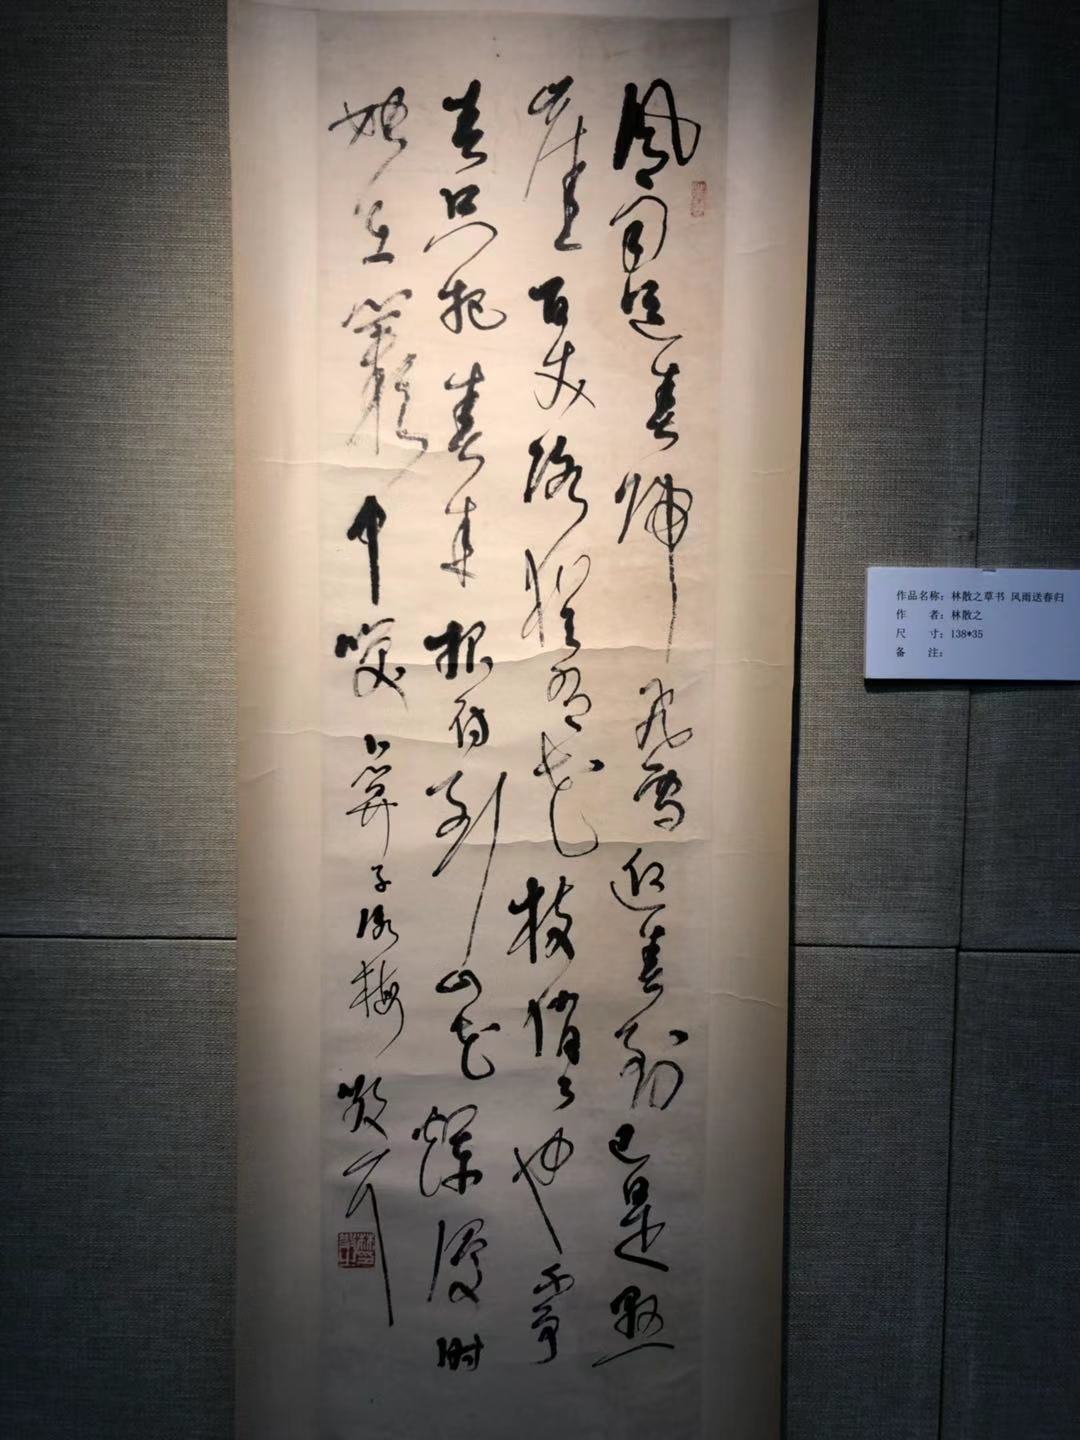 風雨送春歸飛雪迎春到已是懸
崖百丈冰猶有花枝俏々也不爭
春只把春來报待到山花爛漫时
她在叢中笑 卜算子詠梅 散耳
作品名称：林散之草书 风雨送春归
作　　者：林散之
尺　　寸：138*35
备　　注：